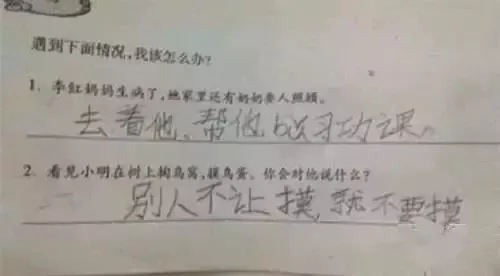 遇到下面情况,我该怎么办?
1. 李红妈妈生病了,她家里还有奶奶要人照顾。
去看他、帮他 b以习功课。
2. 看见小明在树上掏鸟窝,摸鸟蛋。你会对他说什么?
别人不让摸,就不要摸